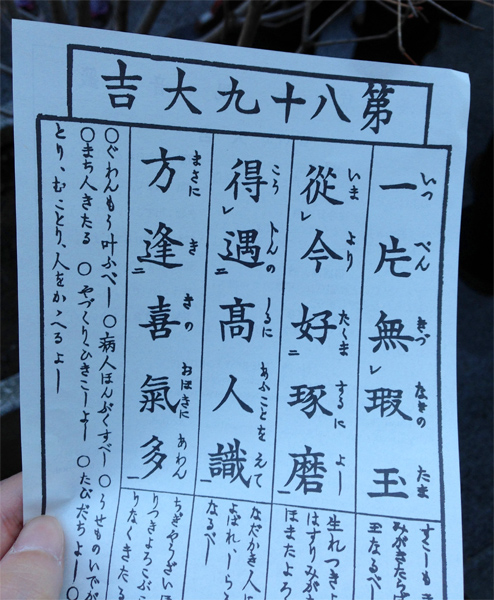 第八十九大吉
いつ ぺん きづ なきの たま
一片無レ瑕玉
いま より たくま するに よし
從レ今好二琢磨一
こう じんの しるに あふことを えて
得レ遇二高人識一
まさに き きの おほきに あわん
方逢二喜氣多一
すこしもき
玉なるべし
生れつきよ
はすりみが
ほまたよろ
なだかき人に
よばれ、しら
なるべし
ちぎやうざいほ
りつきよろこぶこ
りなくきたる
〇ぐわんもう叶ふべし 〇病人ほんぶくすべし 〇うせものいでが
〇まち人きたる 〇やづくり、ひきこしよし 〇たびだちよし 〇
とり、むことり、人をかゝへるよし